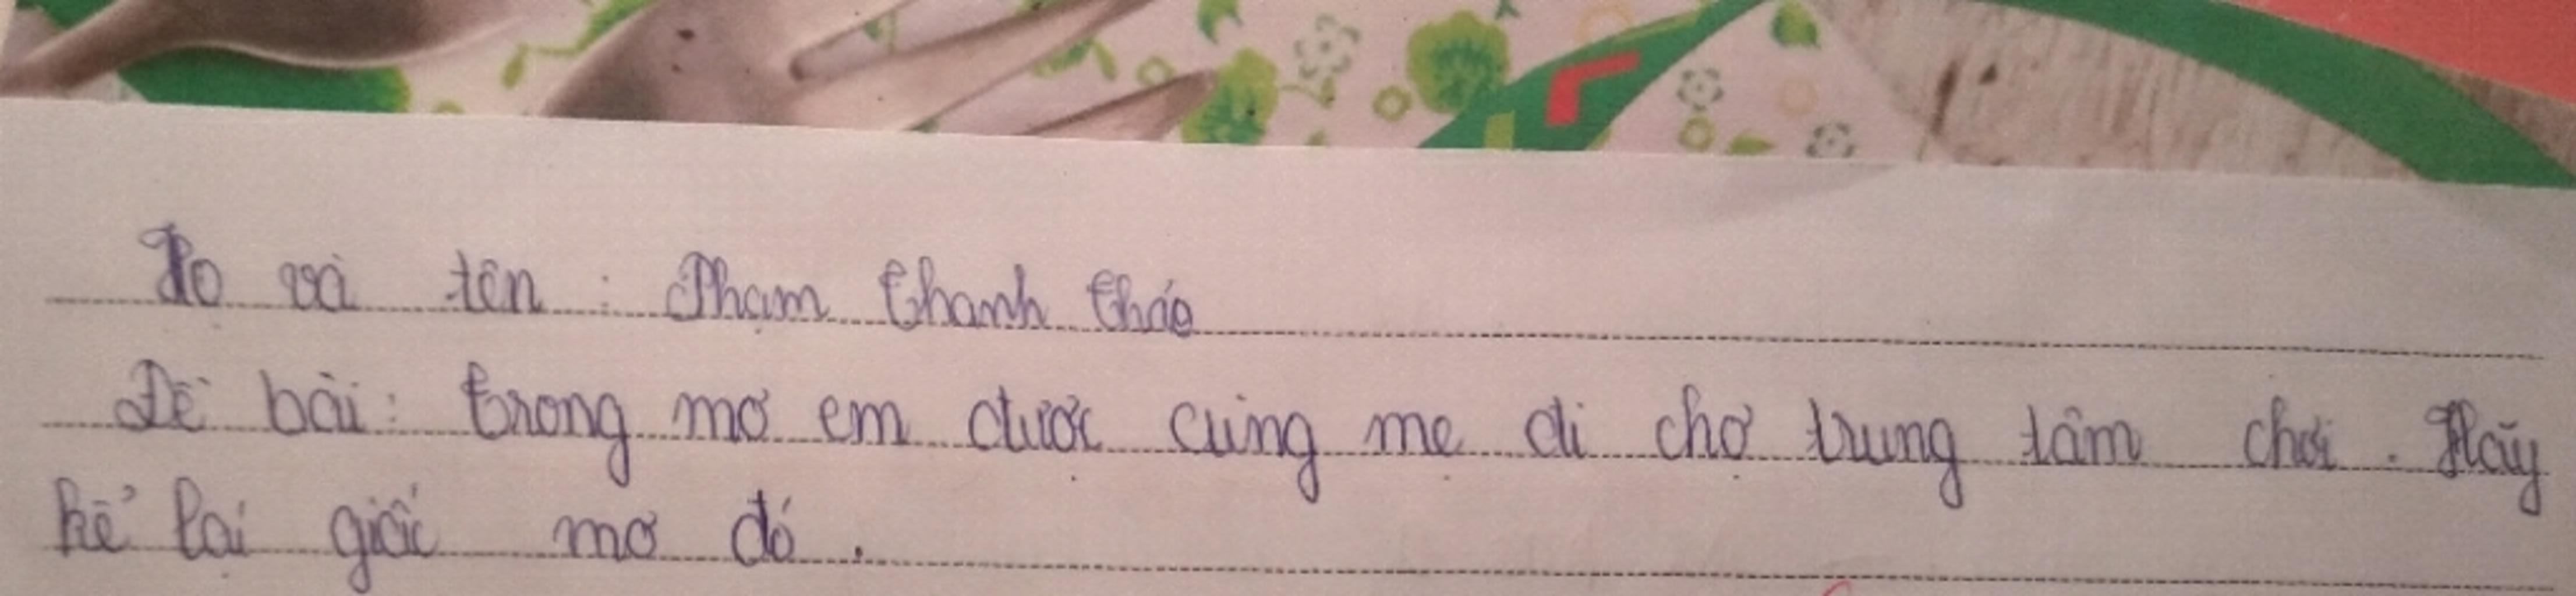 Họ và tên : Phạm Thanh Thảo
Đề bài : Trong mơ em được cùng mẹ đi chợ trung tâm chơi . Hãy
kể lại giấc mơ đó .